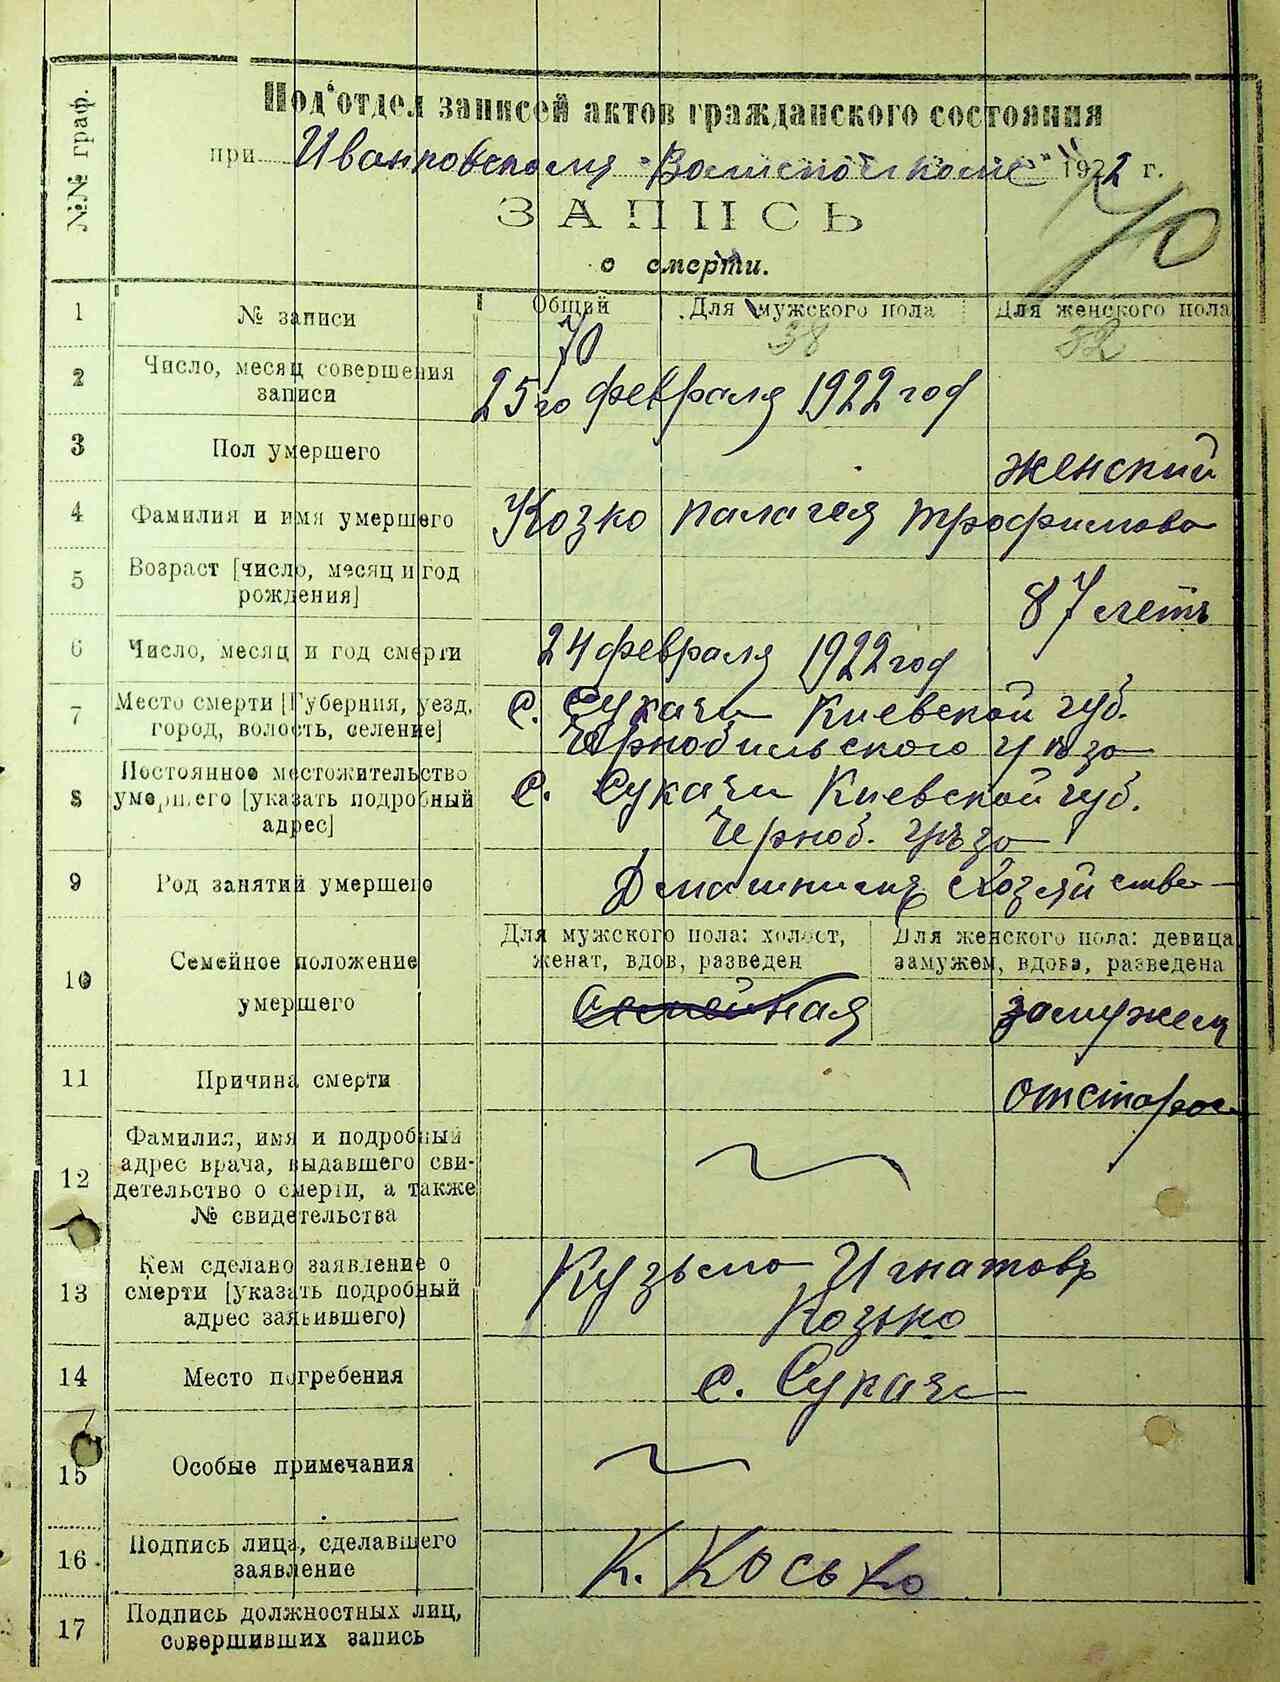 №№ граф.
Под'отдел записей актов гражданского состояния
при Иванковском Волисполкоме 1922 г.
70
ЗАПИСЬ
о смерти.
1 № записи Общий Для мужского пола Для женского пола
70 38 32
2 Число, месяц совершения
записи
25го февраля 1922 год
3 Пол умершего женский
4 Фамилия и имя умершего Козко палагея трофимова
5 Возраст [число, месяц и год
рождения]
87 летъ
6 Число, месяц и год смерти 24 февраля 1922 год
7 Место смерти [Губерния, уезд,
город, волость, селение]
с. Сукачи Киевской губ.
Чернобильского уезда
8 Постоянное местожительство
умершего [указать подробный
адрес]
с. Сукачи Киевской губ.
Черноб. уезда
9 Род занятий умершего хозяйстве
10 Семейное положение
умершего
Для мужского пола: холост,
женат, вдов, разведен
Для женского пола: девица
замужем, вдова, разведена
Семейная
замужем
11 Причина смерти от старос
12 Фамилия, имя и подробный
адрес врача, выдавшего сви-
детельство о смерти, а также
№ свидетельства
13 Кем сделано заявление о
смерти [указать подробный
адрес заявившего)
Кузьма Игнатов
Козько
14 Место погребения с. Сукачи
15 Особые примечания
16 Подпись лица, сделавшего
заявление
К. Косько
17 Подпись должностных лиц,
совершивших запись